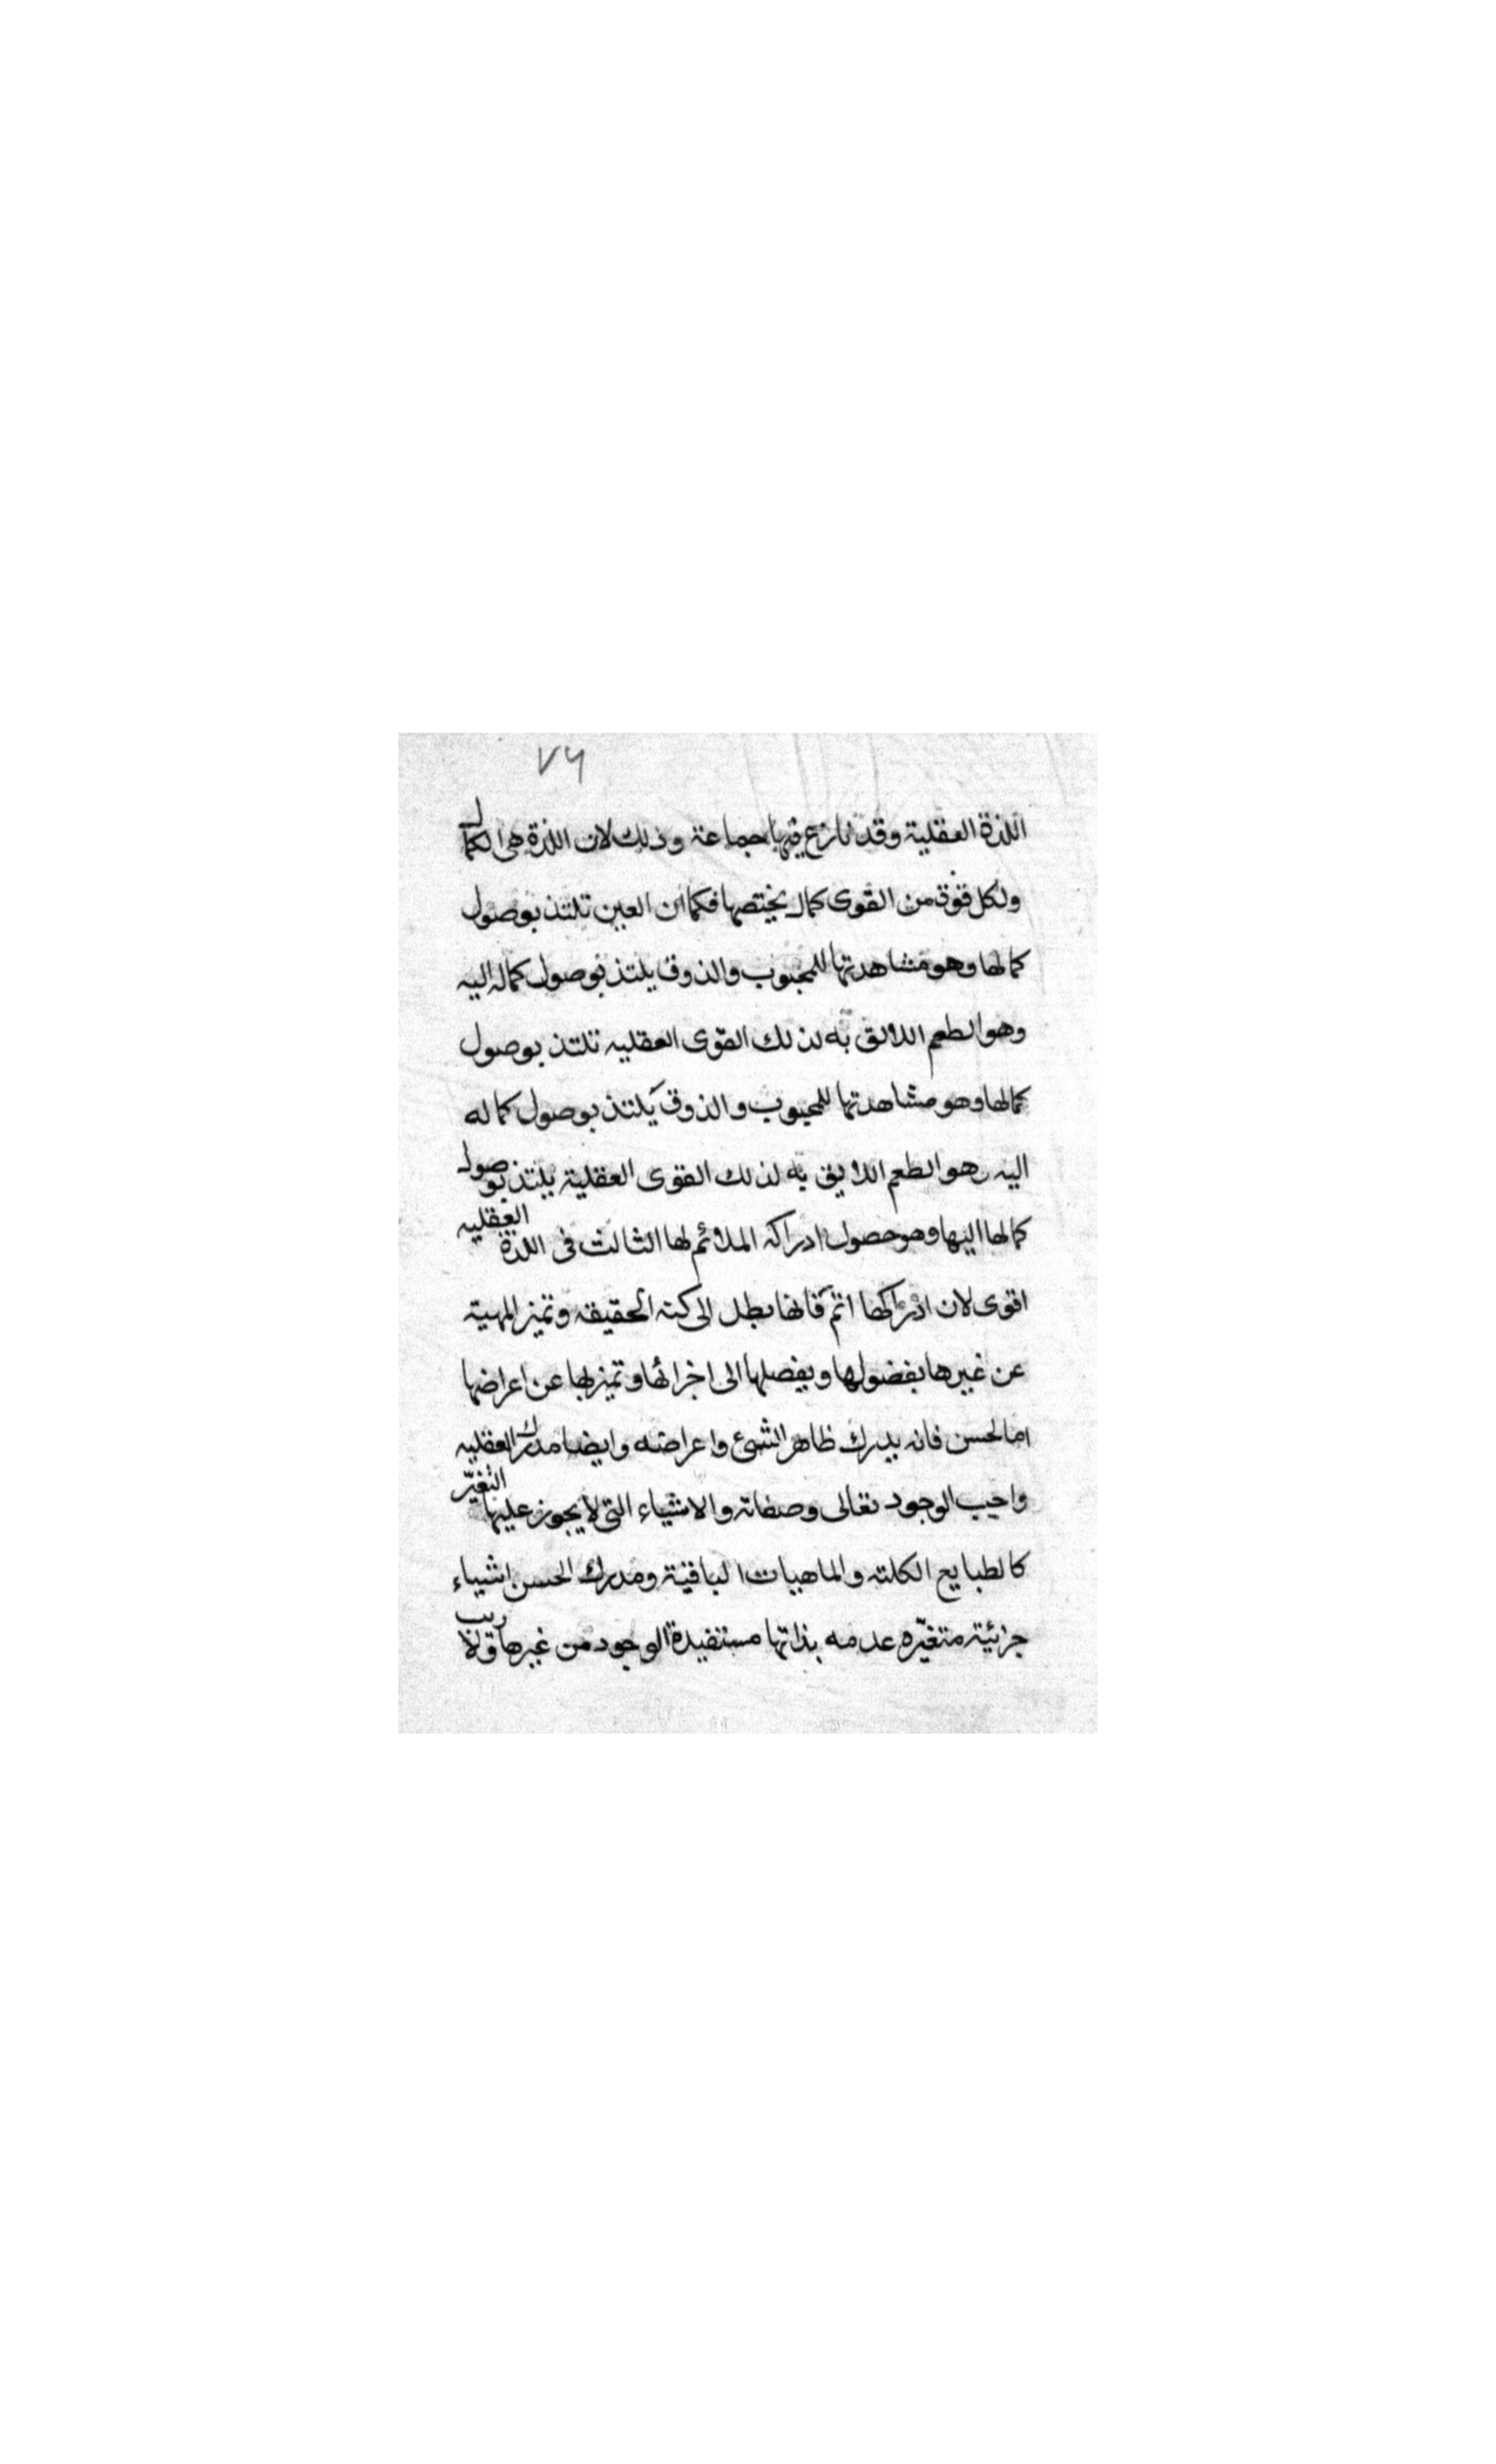 ٧٦
اللذة العقلية وقد نازع فيها جماعة وذلك لان اللذة هى الكمال
ولكل قوة من القوى كمال يختصها فكما ان العين تلتذ بوصول
كمالها وهو مشاهدتها للمحبوب والذوق يلتذ بوصول كماله اليه
وهو الطعم اللائق به لذلك القوى العقليه تلتذ بوصول
كمالها وهو مشاهدتها للمحبوب والذوق يلتذ بوصول كماله
اليه وهو الطعم اللايق به لذلك القوى العقلية يلتذ بوصول
كمالها اليها وهو حصول ادراكه الملائم لها الثالث فى اللذة العقليه
اقوى لان ادراكها اتم فانها تصل الى كنه الحقيقه وتميز المهية
عن غيرها بفضولها ويفصلها الى اخرائها وتميزها عن اعراضها
اما لحسن فانه يدرك ظاهر الشىء واعراضه وايضا مدرك العقليه
واجب الوجود تعالى وصفاته والاشياء التى لا يجوز عليها التغيّر
كالطبايع الكلته والماهيات الباقية ومدرك الحسن اشياء
جزئية متغيّره عدمه بذاتها مستفيدة الوجود من غيرها ولا ريب